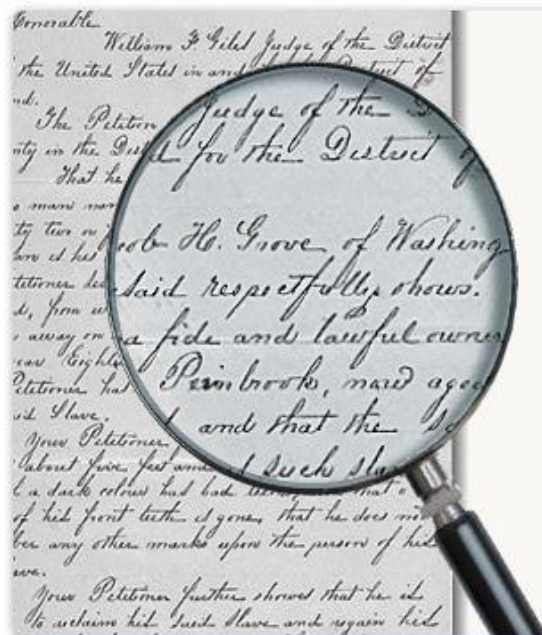 Honorable
William F Giles Judge of the District
the United States in and
The Petition
nty in the Dist
That he
man nam
ty two or
is his
Petitioner
d, from w
away on
ear Eight
Petitioner has
said Slave.
Your Petitioner
about five feet and
a dark colour has bad
of his front teeth is gone, that he does not
ber any other marks upon the person of his
Your Petitioner further shows that he is
to reclaim his said Slave and regain his
Judge of the D
d for the District of
cob H. Grove of Washing
said respectfully shows.
a fide and lawful owner
Pembrook, now aged
and that the s
such sla